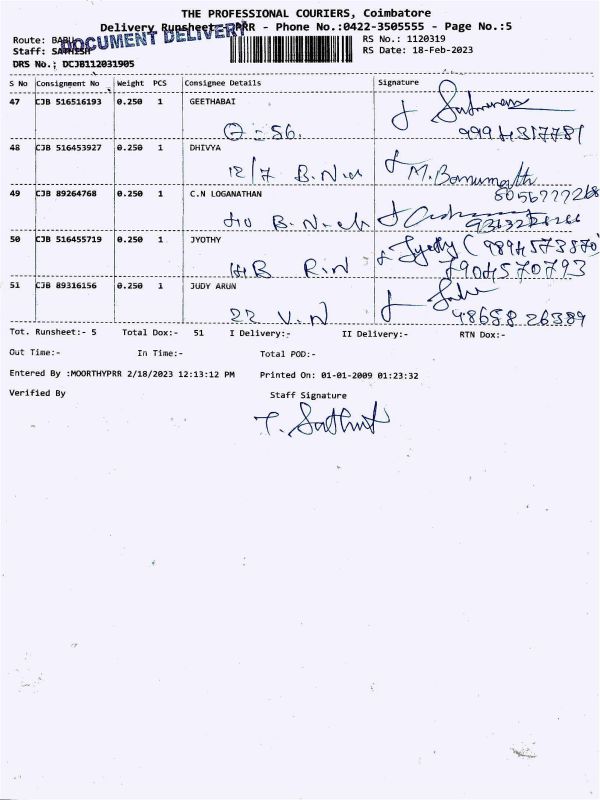 THE PROFESSIONAL COURIERS, Coimbatore
Delivery Runsheet - PRR - Phone No.:0422-3505555 - Page No.:5
DOCUMENT DELIVERY
Route: BABU
RS No.: 1120319
Staff: SATHISH
RS Date: 18-Feb-2023
DRS No.: DCJB112031905
S No Consignment No Weight PCS Consignee Details Signature
47 CJB 516516193 0.250 1 GEETHABAI
56. 9994317781
48 CJB 516453927 0.250 1 DHIVYA
12/7 B.N. M.Banumathi
8056777268
49 CJB 89264768 0.250 1 C.N LOGANATHAN
B.N.
50 CJB 516455719 0.250 1 JYOTHY
Jyothy (9894573870)
R.N 7904570793
51 CJB 89316156 0.250 1 JUDY ARUN
22 V.N 98658 26389
Tot. Runsheet:- 5 Total Dox:- 51 I Delivery:- II Delivery:- RTN Dox:-
Out Time:- In Time:- Total POD:-
Entered By :MOORTHYPRR 2/18/2023 12:13:12 PM Printed On: 01-01-2009 01:23:32
Verified By Staff Signature